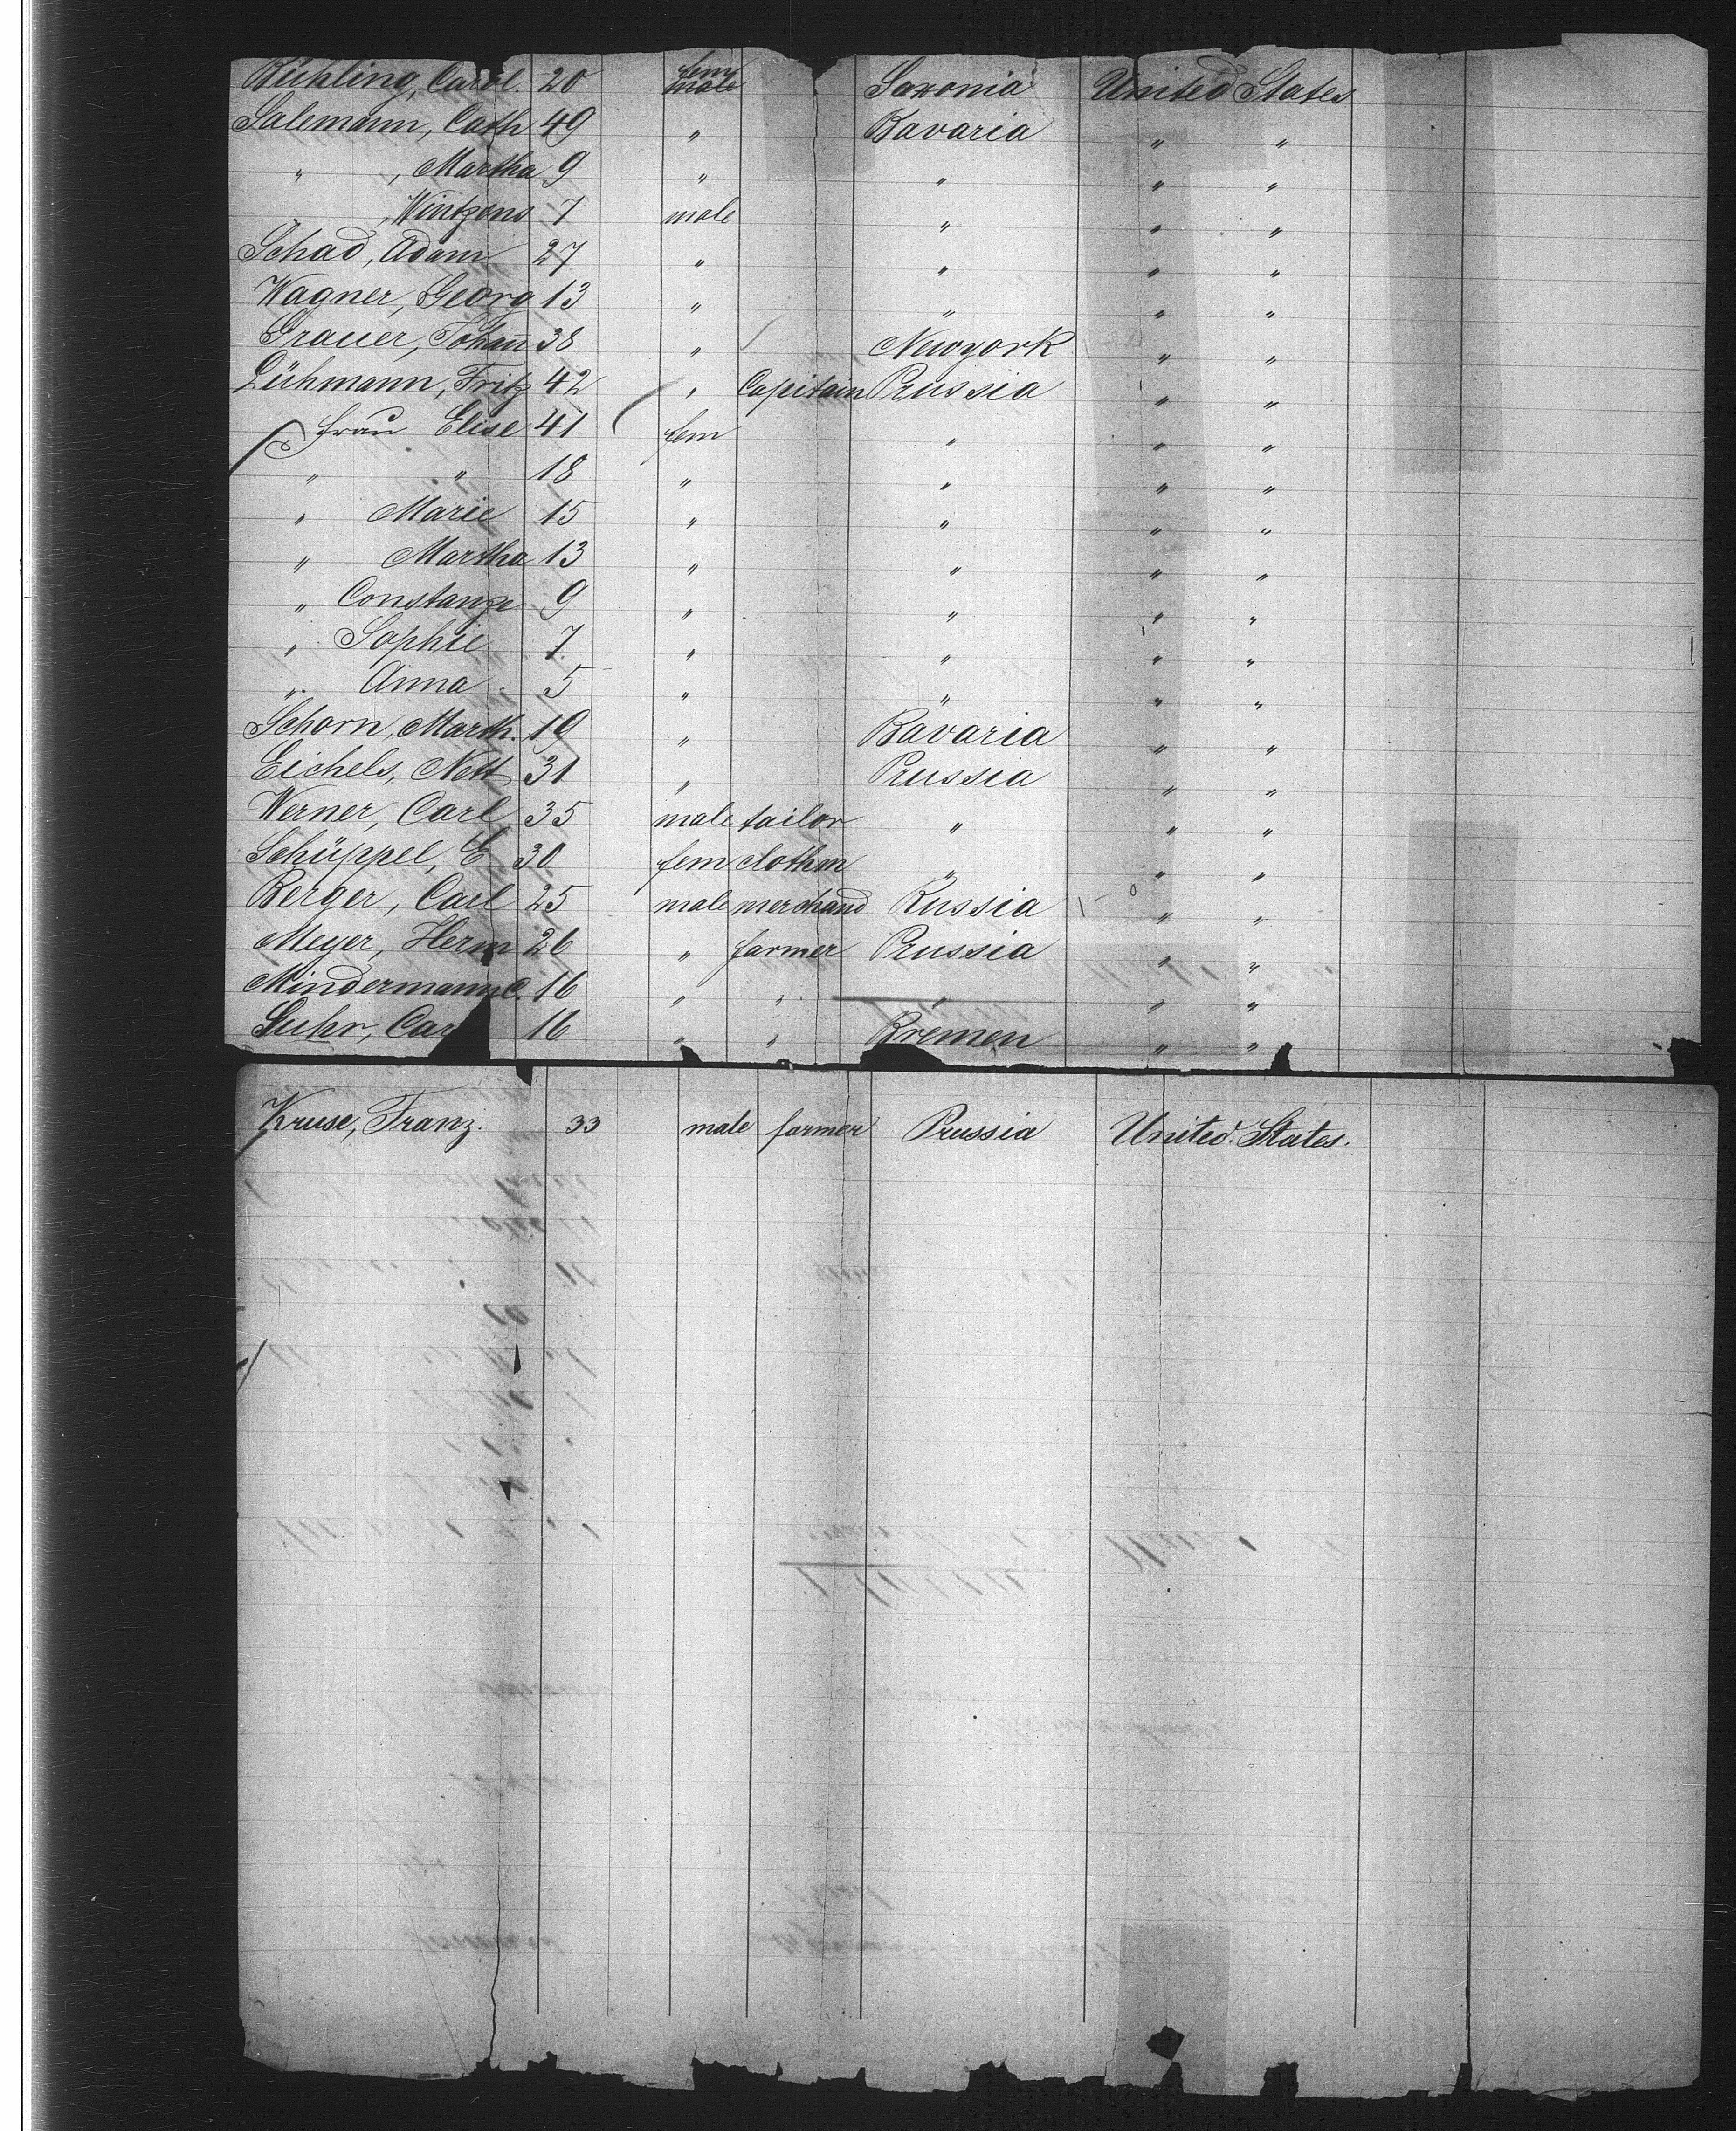 Bühling, Carol. 20 fem male Saxonia United States
Salemann, Cath 49 " Bavaria " "
" , Martha 9 " " " "
, Wintzens 7 male " " "
Schad, Adam 27 " " " "
Wagner, Georg 13 " " " "
Grauer, Johann 38 " Newyork " "
Lühmann, Fritz 42 " Capitain Prussia " "
frau Elise 41 fem " " "
" " 18 " " " "
" Marie 15 " " " "
" Martha 13 " " " "
" Constanze 9 " " " "
" Sophie 7 " " " "
" Anna 5 " " " "
Schorn, Marth. 19 " Bavaria " "
Eichels, Nett 31 " Prussia " "
Werner, Carl 35 male tailor " " "
Schüppel, E 30 fem clothm " " "
Berger, Carl 25 male merchand Russia " "
Meyer, Herm 26 " farmer Prussia " "
Mindermann C. 16 " " " " "
Suhr, Car 16 " " Bremen " "
Kruse, Franz. 33 male farmer Prussia United States.